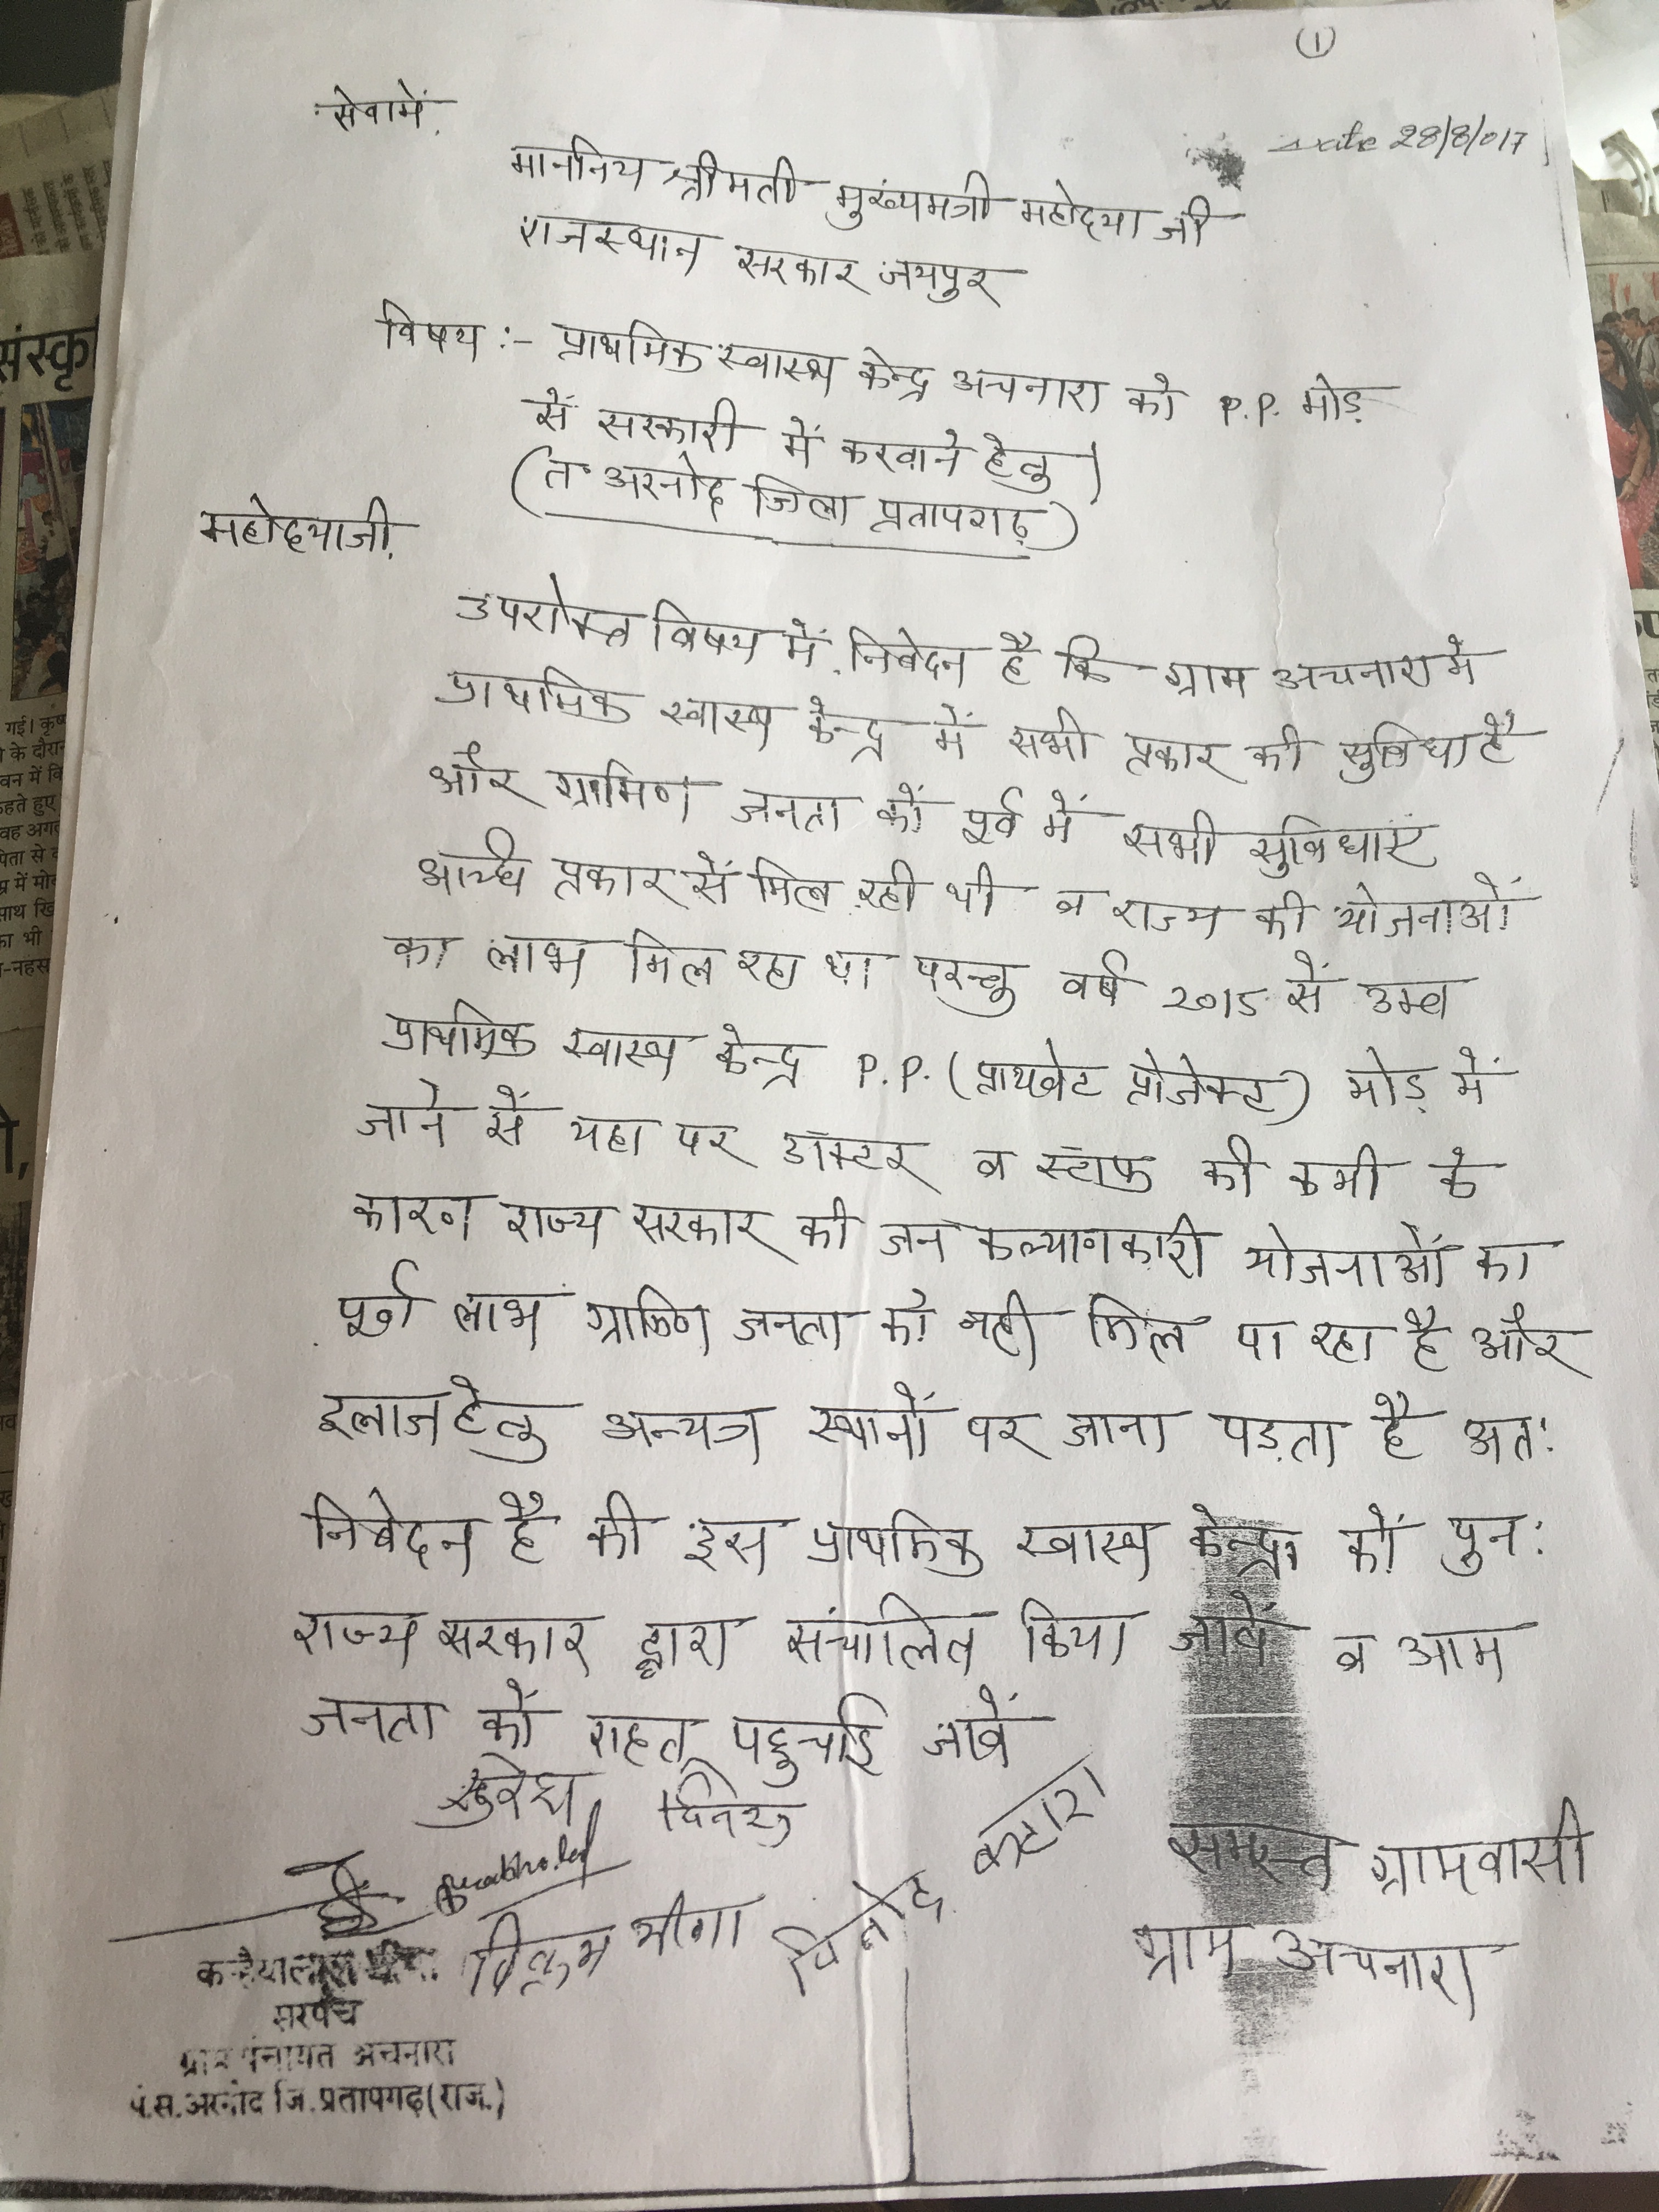 (1)
Date 28/8/017
सेवामें,
माननिय श्रीमती मुख्यमत्री महोदया जी
राजस्थान सरकार जयपुर
विषय :- प्राथमिक स्वास्थ्य केन्द्र अचनारा को P.P. मोड़
सें सरकारी में करवाने हेतु
(त॰ अरनोद जिला प्रतापगढ़)
महोदयाजी,
उपरोक्त विषय में निवेदन है कि ग्राम अचनारा में
प्राथमिक स्वास्थ्य केन्द्र में सभी प्रकार की सुविधा है
और ग्रामिण जनता कों पूर्व में सभी सुविधाएं
अच्छे प्रकार सें मिल रही थी व राज्य की योजनाओं
का लाभ मिल रहा था परन्तु वर्ष 2015 सें उक्त
प्राथमिक स्वास्थ्य केन्द्र P.P. (प्रायवेट प्रोजेक्ट) मोड़ में
जाने सें यहा पर डॉक्टर व स्टाफ की कमी के
कारण राज्य सरकार की जन कल्याणकारी योजनाओं का
पूर्ण लाभ ग्रामिण जनता को नही मिल पा रहा है और
इलाज हेतु अन्यत्र स्थानों पर जाना पड़ता है अत:
निवेदन है की इस प्राथमिक स्वास्थ्य केन्द्र कों पुन:
राज्य सरकार द्वारा संचालित किया जावें व आम
जनता कों राहत पहुचाई जावें
दिनेश
विक्रम मीणा
विनोद कटारा
समस्त ग्रामवासी
ग्राम अचनारा
कन्हैयालाल
सरपंच
ग्राम पंचायत अचनारा
पं.स.अरनोद जि.प्रतापगढ़(राज.)
संस्कृ
गई। कृष्
के दौरान
वन में वि
हते हुए
वह अगत
पिता से
साथ खि
का भी